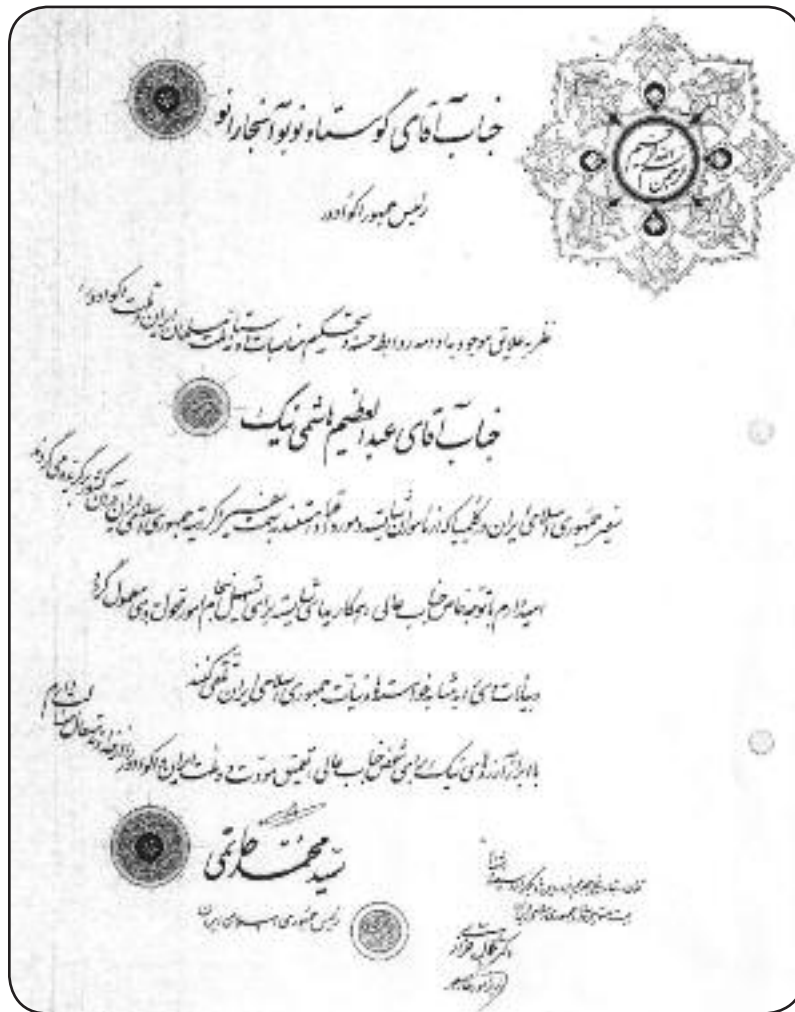 بسم الله الرحمن الرحیم
جناب آقای گوستاو نوبوآ بنجارانو
رئیس جمهور اکوادور
نظر به علایق موجود به ادامه روابط حسنه و تحکیم مناسبات دوستانه ملت مسلمان ایران و ملت اکوادور،
جناب آقای عبدالعظیم هاشمی نیک
سفیر جمهوری اسلامی ایران در کلمبیا که از ماموران شایسته و مورد اعتماد هستند به سمت سفیر اکردیته جمهوری اسلامی ایران در آن کشور برگزیده می گردند
امیدوارم با توجه خاص جناب عالی، همکاریهای شایسته برای تسهیل انجام امور محوله به وی معمول گردد
و بیانات ایشان را به مثابه خواسته ها و نیات جمهوری اسلامی ایران تلقی کنند
با ابراز آرزوهای نیک برای شخص جناب عالی، تعمیق مودت دو ملت ایران و اکوادور را از خداوند متعال مسئلت دارم
سید محمد خاتمی
رئیس جمهوری اسلامی ایران
تهران
دکتر کمال خرازی
وزیر امور خارجه